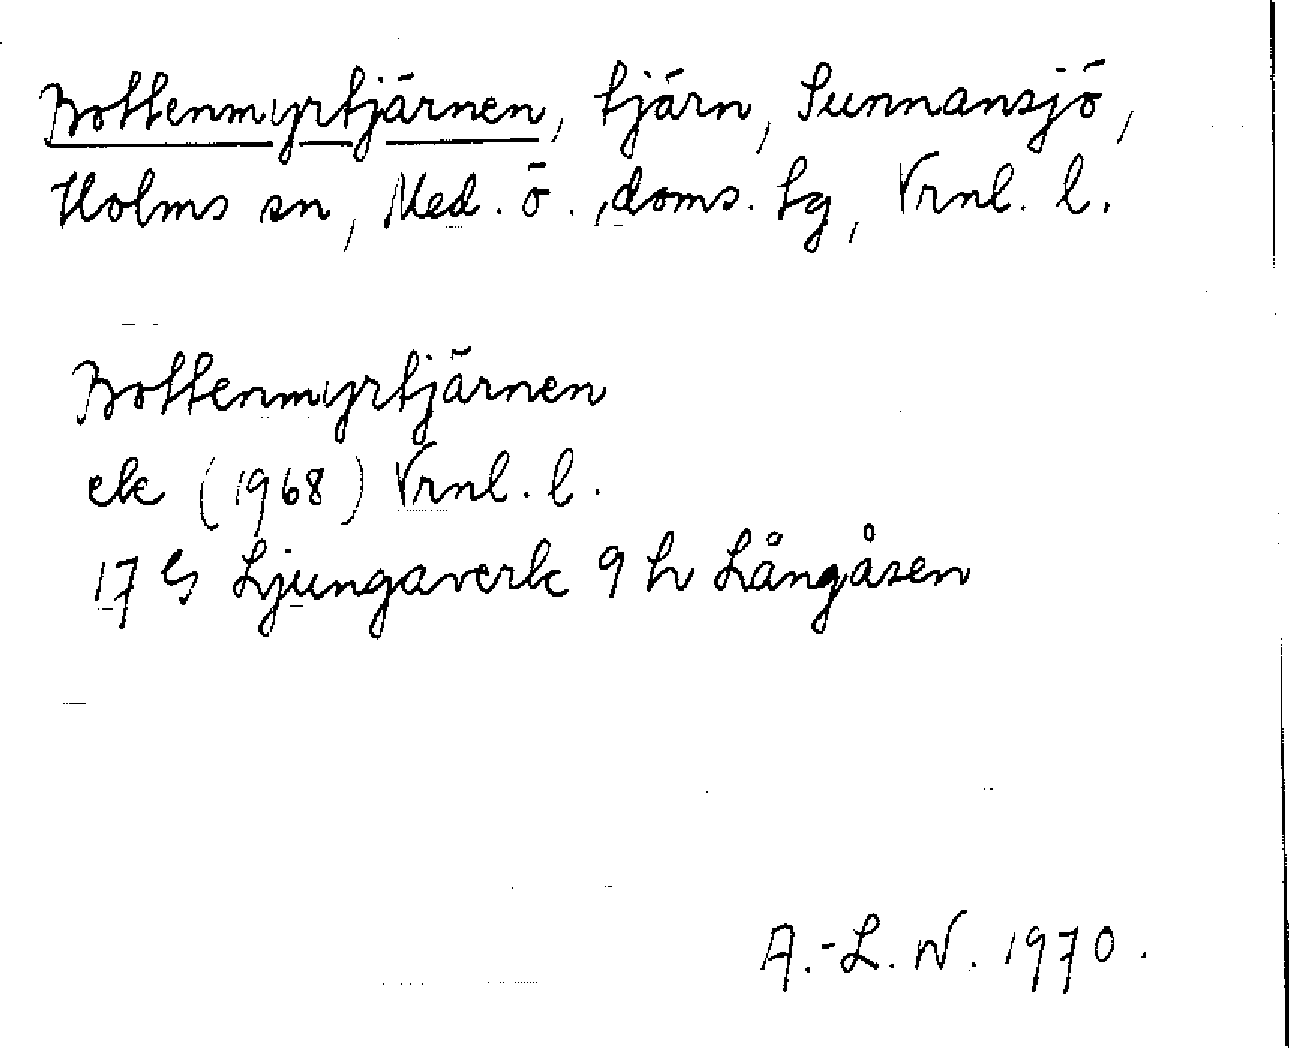 Bottenmyrtjärnen, tjärn, Sunnansjö,
Holms sn, Med. ö. doms. tg, Vrnl. l.
Bottenmyrtjärnen
ek (1968) Vrnl. l.
17 G Ljungaverk 9 h Långåsen
A.-L. W. 1970.